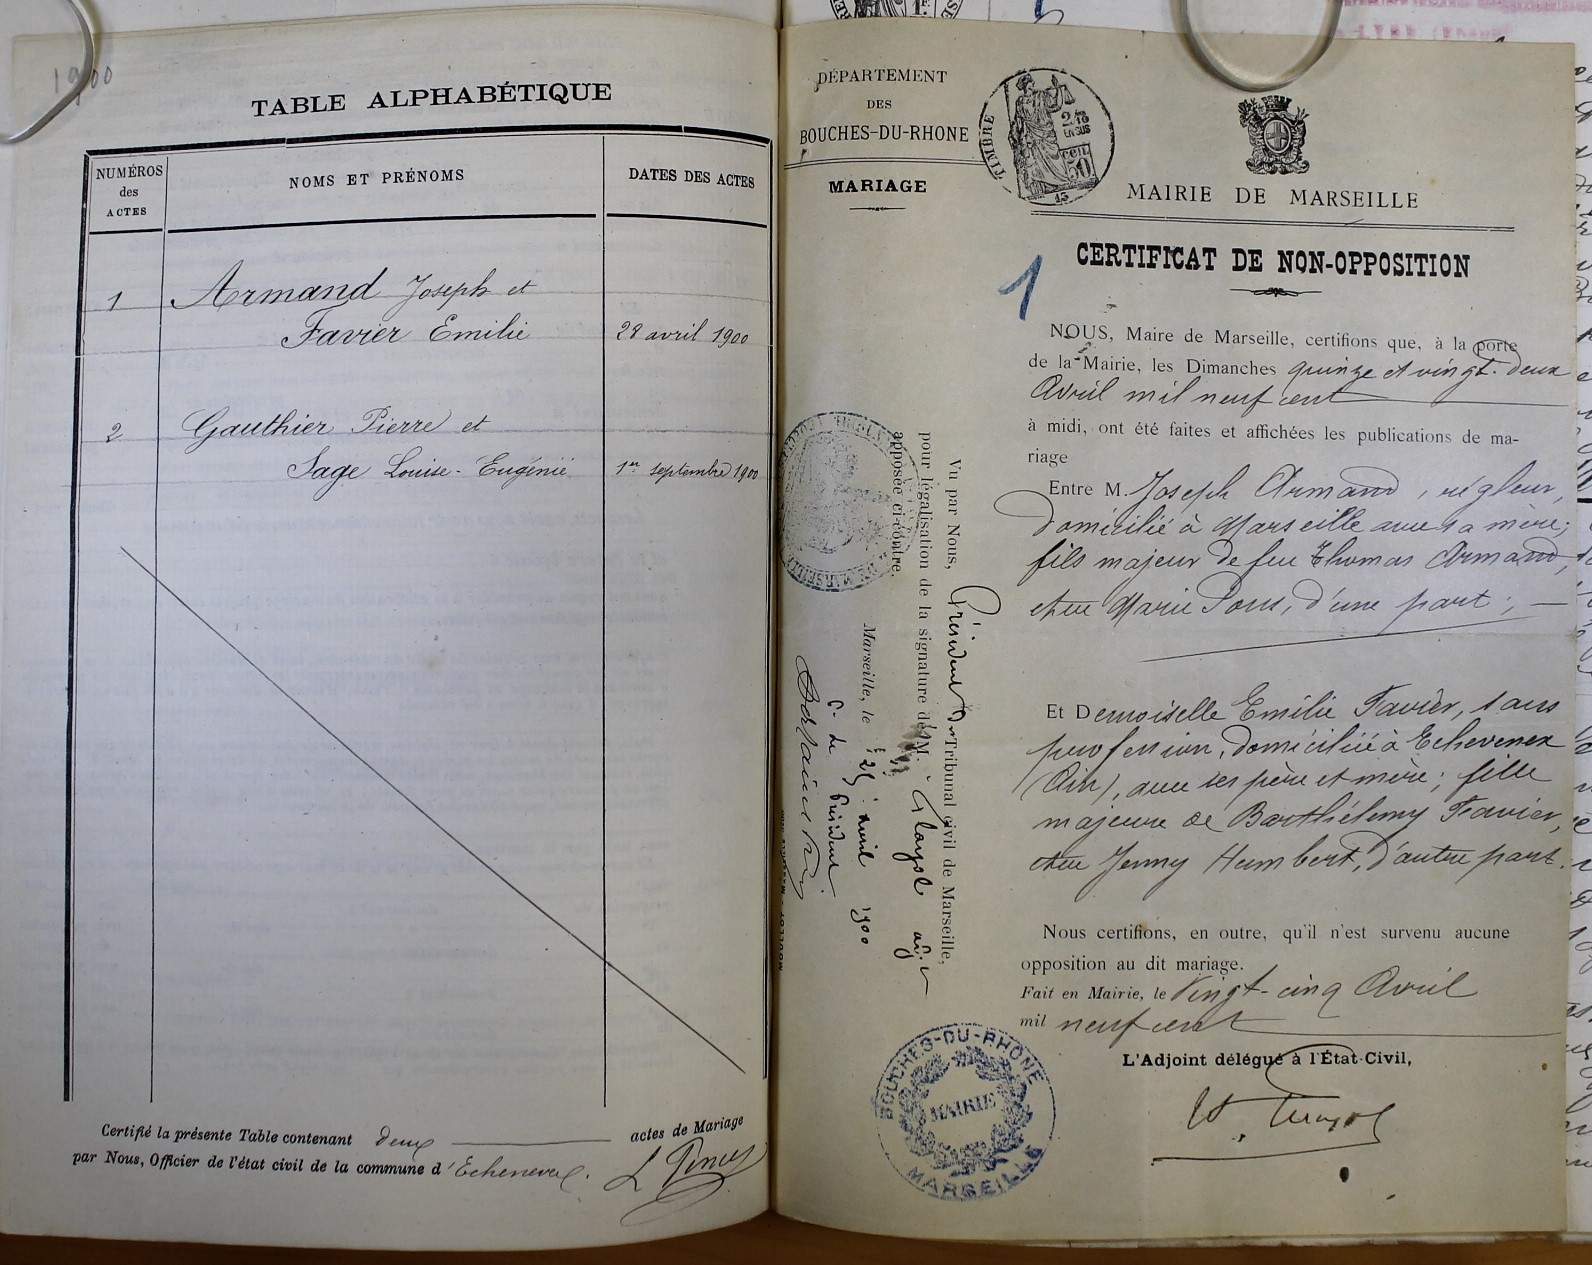 1900
TABLE ALPHABÉTIQUE
NUMÉROS
des
ACTES
NOMS ET PRÉNOMS
DATES DES ACTES
1
Armand Joseph et
Favier Emilie
28 avril 1900
2
Gauthier Pierre et
Sage Louise-Eugénie
1er septembre 1900
Certifié la présente Table contenant deux actes de Mariage
par Nous, Officier de l'état civil de la commune d'Echenevex.
DÉPARTEMENT
DES
BOUCHES-DU-RHONE
MARIAGE
TIMBRE
2/10
EN SUS
CEN.
50
MAIRIE DE MARSEILLE
CERTIFICAT DE NON-OPPOSITION
1
NOUS, Maire de Marseille, certifions que, à la porte
de la Mairie, les Dimanches quinze et vingt-deux
Avril mil neuf cent
à midi, ont été faites et affichées les publications de ma-
riage
Entre M. Joseph Armand, régleur,
domicilié à Marseille avec sa mère;
fils majeur de feu Thomas Armand,
et de Marie Pous, d'une part;
Et Demoiselle Emilie Favier, sans
profession, domiciliée à Echevenex
(Ain), avec ses père et mère; fille
majeure de Barthélemy Favier,
et de Jenny Humbert, d'autre part.
Nous certifions, en outre, qu'il n'est survenu aucune
opposition au dit mariage.
Fait en Mairie, le Vingt-cinq Avril
mil neuf cent
L'Adjoint délégué à l'État-Civil,
BOUCHES-DU-RHONE
MAIRIE
MARSEILLE
Vu par Nous, Président du Tribunal civil de Marseille,
pour légalisation de la signature de M.
apposée ci-contre.
Marseille, le 25 avril 1900
P. le Président